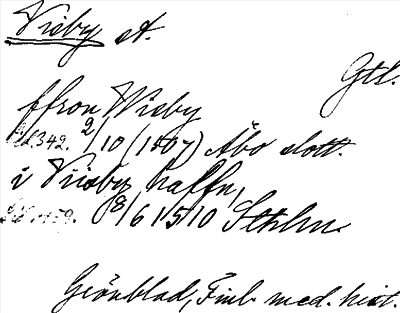 Visby st.
Gtl.
ffron Wisby
s. 342. 2/10 (1507) Åbo slott.
i Viisby haffn,
8/6 1510 Sthlm.
Grönblad, Finl. med. hist.